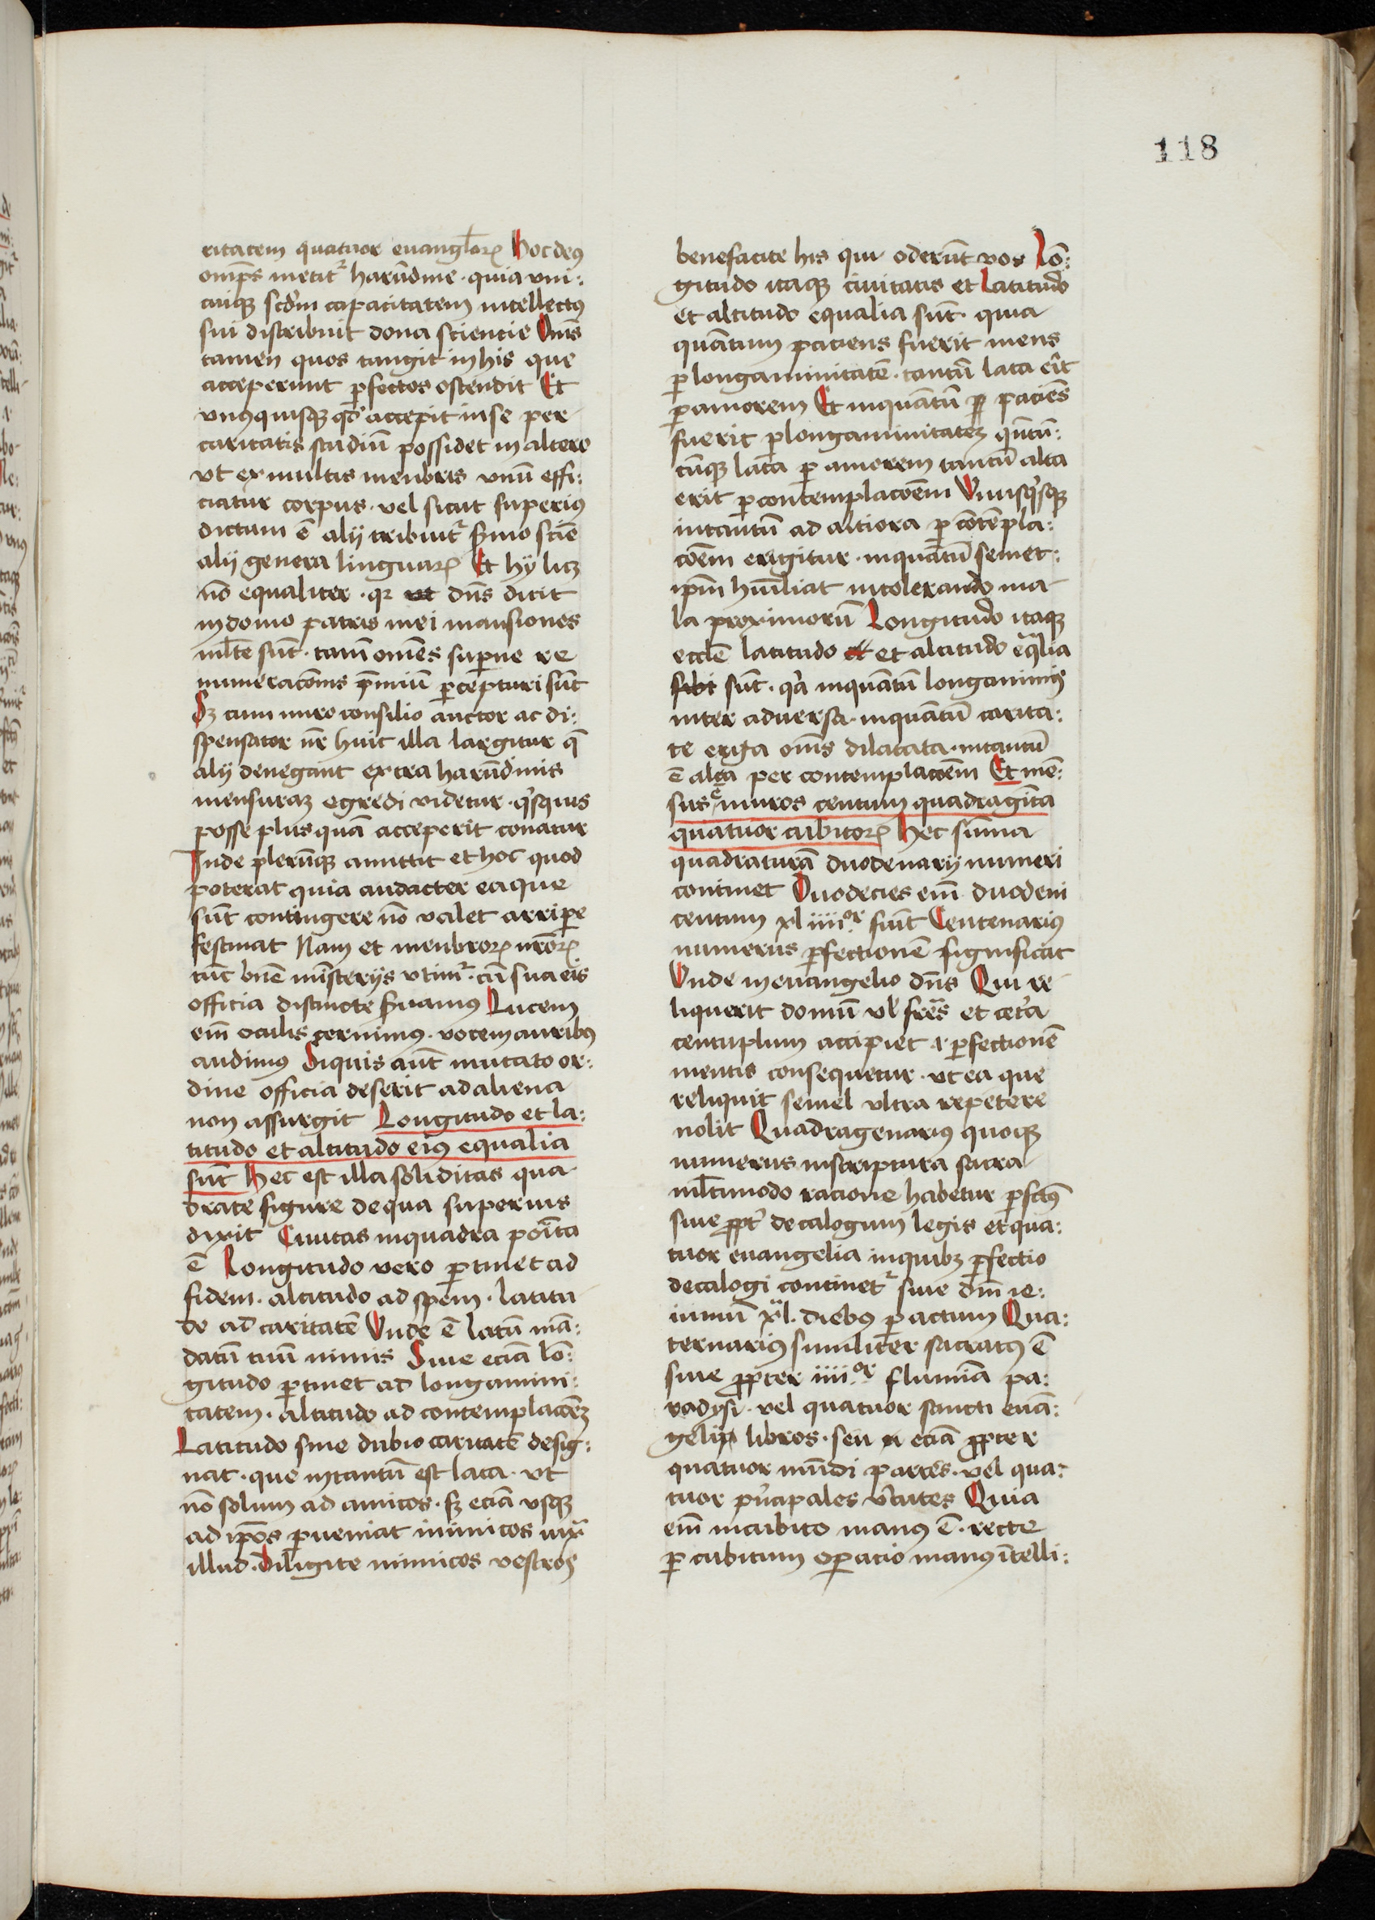 118
ritatem quatuor euangl'orꝝ Hoc deus
omp̄s metitᷣ harūdine · quia vni⸗
cuiqꝫ scdm̄ capacitatem intellectꝰ
sui distribuit dona scientie Om̄s
tamen quos tangit in his que
acceperunt ꝑfectos ostendit Et
vnusquisqꝫ qd' accepit in se per
caritatis studiū possidet in altero
vt ex multis menbris vnū effi⸗
ciatur corpus · vel sicut superiꝰ
dictum ē alij tribuitᷣ ẜmo sciē
alij genera linguarꝝ Et hij licꝫ
nō equaliter · qꝛ dn̄s dicit
in domo patris mei mansiones
ml̄te sūt · tam̄ om̄es superne re
numeracōnis p̄miū ꝑcepturi sūt
Sꝫ cum miro consilio auctor ac di⸗
spensator nr̄ huic illa largitur q̄
alij denegant extra harūdinis
mensuraꝫ egredi videtur · qͥsquis
posse plus quā acceperit conatur
Inde plerūqꝫ amittit et hoc quod
poterat quia audacter ea que
sūt contingere nō valet arriꝑe
festinat Nam et menbrorꝝ nr̄orꝝ
tūc bn̄e mīsterijs vtimᷣ · cū sua eis
officia distincte ẜuamus Lucem
em̄ oculis cernimus · vocem auribꝰ
audimus Siquis aūt mutato or⸗
dine officia deserit ad aliena
non assurgit Longitudo et la⸗
titudo et altitudo eiꝰ equalia
sūt Hec est illa soliditas qua
drate figure de qua superius
dixit Ciuitas in quadra poīta
ē Longitudo vero ꝑtinet ad
fidem · altitudo ad spem · latitu
do ad caritatē Vnde ē latū mā⸗
datū tuū nimis Siue eciā lō⸗
gitudo ꝑtinet ad longamini⸗
tatem · altitudo ad contemplacōeꝫ
Latitudo sine dubio caritatē desig⸗
nat · que intantū est lata · vt
nō solum ad amicos · sꝫ eciā vsqꝫ
ad ip̄os ꝑueniat inimicos iuxͣ
illud · Diligite inimicos vestros
benefacite his qui oderūt vos Lō⸗
gitudo itaqꝫ ciuitatis et Latitudo
et altitudo equalia sūt · quia
quātum paciens fuerit mens
ꝑ longaminitatē · tantū lata erit
ꝑ amorem Et inquātū paciēs
fuerit ꝑ longaminitateꝫ qn̄tū⸗
cūqꝫ lata ꝑ amorem tantū alta
erit ꝑ contemplacōem Vnusqͥsqꝫ
intantū ad altiora ꝑ cōtempla⸗
cōem erigitur · inquātū semet⸗
ip̄m hūiliat in tolerando ma
la proximorū Longitudo itaqꝫ
eccl'ē latitudo et altitudo eqͣlia
sibi sūt · qͥa inquātū longanimis
inter aduersa · inquātū carita⸗
te erga om̄s dilatata · intantū
ē alta per contemplacōem Et mē⸗
sus ē muros centum quadraginta
quatuor cubitorꝝ Hec sūma
quadraturā duodenarij numeri
continet Duodecies em̄ duodeni
centum xliiiiᵒʳ fiūt Centenarius
numerus ꝑfectionē significat
Vnde in euangelio dn̄s Qui re
liquerit domū vl' fr̄es et cet'a
centuplum accipiet · i · ꝑfectionē
mentis consequetur · vt ea que
reliquit semel vltra repetere
nolit Quadragenarius quoqꝫ
numerus in scriptura sacra
ml̄timodo racione habetur ꝑfctꝰ
siue ꝓpt' decalogum legis et qua⸗
tuor euangelia in quibꝫ ꝑfectio
decalogi continetᷣ siue dm̄ ie⸗
iuniū xl · diebꝰ ꝑactum Qua⸗
ternarius similiter sacratꝰ ē
siue ꝓpter iiiiᵒʳ flumīa pa⸗
radysi · vel quatuor sancti euā⸗
gelij libros · seu eciā ꝓpter
quatuor mūdi partes · vel qua⸗
tuor pͥncipales v̓tutes Quia
em̄ in cubito manus ē · recte
ꝑ cubitum oꝑacio manus ītelli⸗